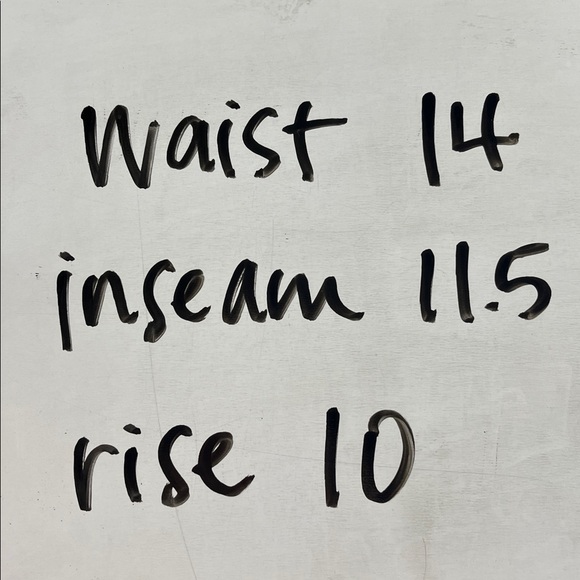 Waist 14
inseam 11.5
rise 10